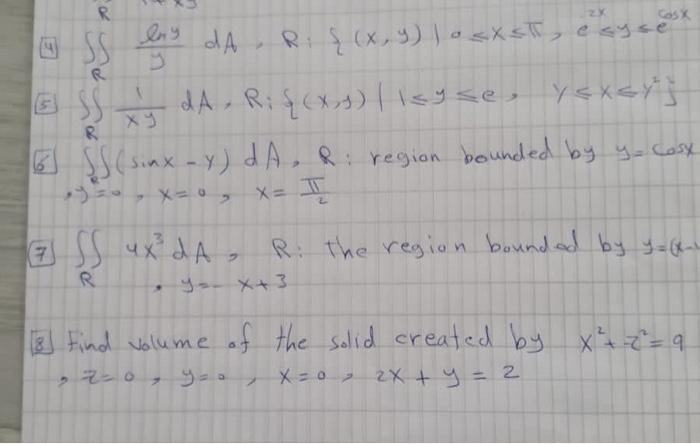 R
[4] ∬ lny/y dA, R: {(x,y) | 0≤x≤π, e^2x≤y≤e^cosx
R
[5] ∬ 1/xy dA, R: {(x,y) | 1≤y≤e, y≤x≤y²}
R
[6] ∬(sinx-y) dA, R: region bounded by y=cosx
R
, y=0, x=0, x=π/2
[7] ∬ 4x³dA, R: the region bounded by y=(x-
R
, y=-x+3
[8] Find volume of the solid created by x²+z²=9
, z=0, y=0, x=0, 2x+y=2